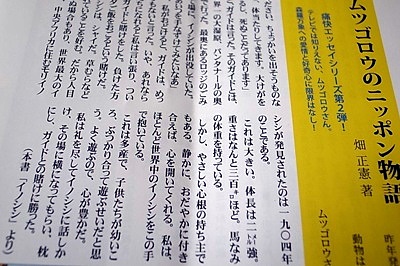 ムツゴロウのニッポン物語
畑 正憲 著
痛快エッセイシリーズ第2弾!
テレビでは知りえない、ムツゴロウさん。
森羅万象への愛情と好奇心に限界はなし!
昨年発
動物は
ムツゴロウさ
ださい。ちょっかいを出そうものな
体当たりしてきます。大けがを
るし、死ぬことだってあります」
ガイドは言った。そのガイドとは、
界一の大湿原、パンタナールの奥
った。最奥にあるロッジのごみ
シシが出没していた。
を手なずけてみたいなあ」
もらすと、ガイドは、めっ
ないと言う。いや、あれなら
になれると私は言い張り、つい
ガイドと賭けをした。負けた方
シシは、シャイだ。草むらなど
場所を好む。だから人目
もあり、世界最大のイ
中央アフリカに住むモリイノ
シシが発見されたのは一九〇四年
のことである。
これは大きい。体長は二㍍強。
重さはなんと三百㌔ほど、馬なみ
の体重を持っている。
しかし、やさしい心根の持ち主で
もある。静かに、おだやかに付き
合えば、心を開いてくれる。私は、
ほとんど世界中のイノシシをこの手
で抱いている。
これは多産で、子供たちが幼いこ
ろ、ぶつかり合って遊ぶせいだと思
う。よく遊ぶので、心が豊かだ。
私は礼を尽してイノシシに話しか
け、その場に横になってもらい、枕
にし、ガイドとの賭けに勝った。
(本書「イノシシ」より)